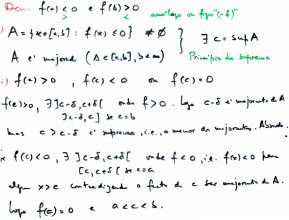 Dem: f(a)<0 e f(b)>0 análogo ou fazer "(-f)"
A = {x∈[a,b] : f(x)≤0} ≠∅ } ∃ c = sup A
A é majorado (A⊂[a,b], b<∞) Princípio do supremo
i) f(c)>0, f(c)<0 ou f(c)=0
f(c)>0, ∃ ]c-δ, c+δ[ onde f>0. Logo c-δ é majorante de A
]c-δ, c] se c=b
mas c>c-δ é supremo, i.e., o menor dos majorantes. Absurdo.
f(c)<0, ∃ ]c-δ, c+δ[ onde f<0, i.e. f(x)<0 para
[c, c+δ[ se c=a
algum x>c contradizendo o facto de c ser majorante de A.
Logo f(c)=0 e a<c<b.